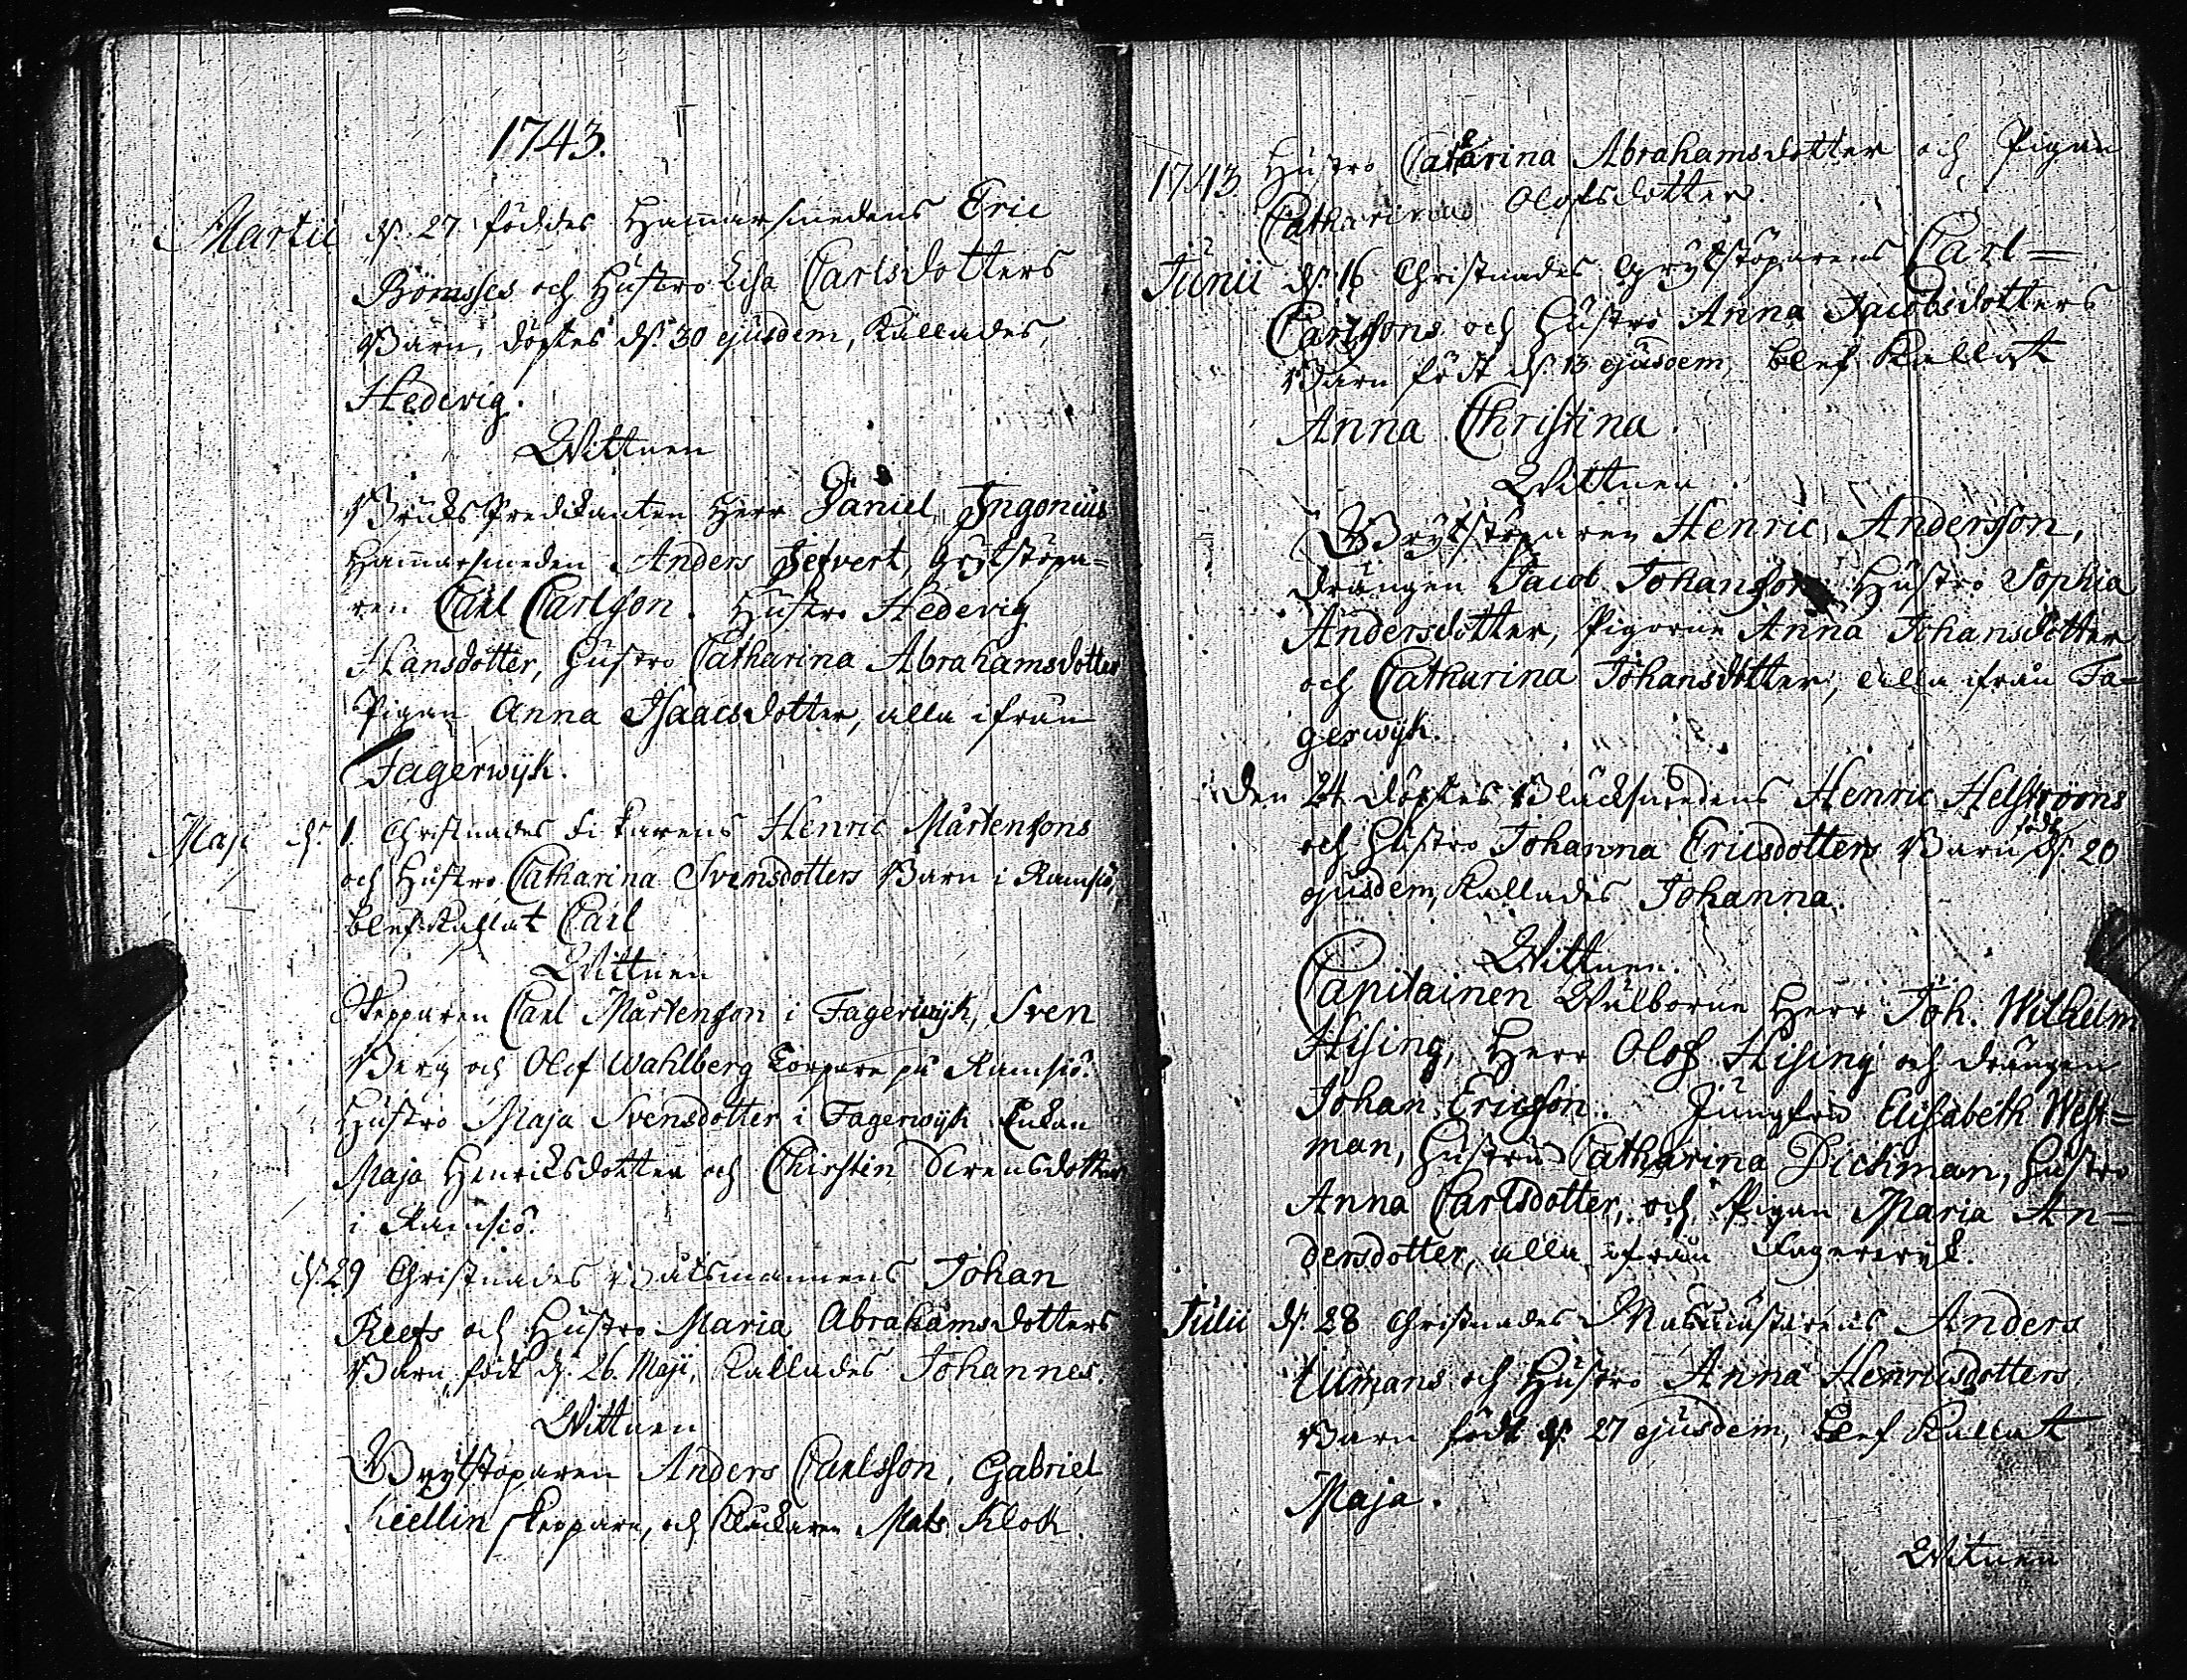 1743.
Martii d. 27 föddes Hammarsmedens Eric
Bömsses och Hustro Lisa Carlsdotters
Barn, döptes d. 30 ejusdem, kallades,
Hedevig.
Wittnen
Bruks Predikanten Herr Daniel Ingonius
Hammarsmeden Anders Sefvert, grytstöpa=
ren Carl Carlsson. Hustro Hedevig
Hansdotter, Hustro Catharina Abrahamsdotter
Pigan Anna Isaacsdotter, alla ifrån
Fagerwijk.
Maji d. 1. Christnades Fiskarens Henric Mårtensons
och Hustro Catharina Svensdotters Barn i Ramsiö,
blef kallat Carl
Wittnen
Skepparen Carl Mårtenson i Fagerwijk, Sven
Berg och Olof Wahlberg Torpare på Ramsiö.
Hustro Maja Svensdotter i Fagerwijk Enkan
Maja Henriksdotter och Chirstin Svensdotter
i Ramsiö.
d. 29 Christnades Båtsmannens Johan
Reefs och Hustro Maria Abrahamsdotters
Barn födt d. 26. Maji, kallades Johannes.
Wittnen
Grytstöparen Anders Carlsson, Gabriel
Kiellin skeppare, och Klockaren Mats Klock.
1743 Hustro Catharina Abrahamsdotter och Pigan
Catharina Olofsdotter.
Junii d. 16 Christnades Grytstöparens Carl=
Carlssons och Hustro Anna Jacobsdotters
Barn födt d. 13 ejusdem, blef kallat
Anna Christina.
Wittnen
Grytstöparen Henric Andersson,
drängen Jacob Johansson Hustro Sophia
Andersdotter, Pigorne Anna Johansdotter
och Catharina Johansdotter, alla ifrån Fa=
gerwijk.
Den 24 döptes Blacksmedens Henric Helstrooms
och Hustro Johanna Ericsdotters Barn födt d. 20
ejusdem, kallades Johanna.
Wittnen.
Capitainen Wälborne Herr Joh. Wilhelm
Hising, Herr Olof Hising och drängen
Johan Ericsson. Jungfru Elisabeth West=
man, Hustru Catharina Dickman, Hustro
Anna Carlsdotter, och Pigan Maria An=
dersdotter, alla ifrån Fagerwyk.
Julii d. 28 Christnades Masmästarens Anders
Ulmans och Hustro Anna Henricsdotters
Barn födt d. 27 ejusdem, blef kallat
Maja.
Witnen